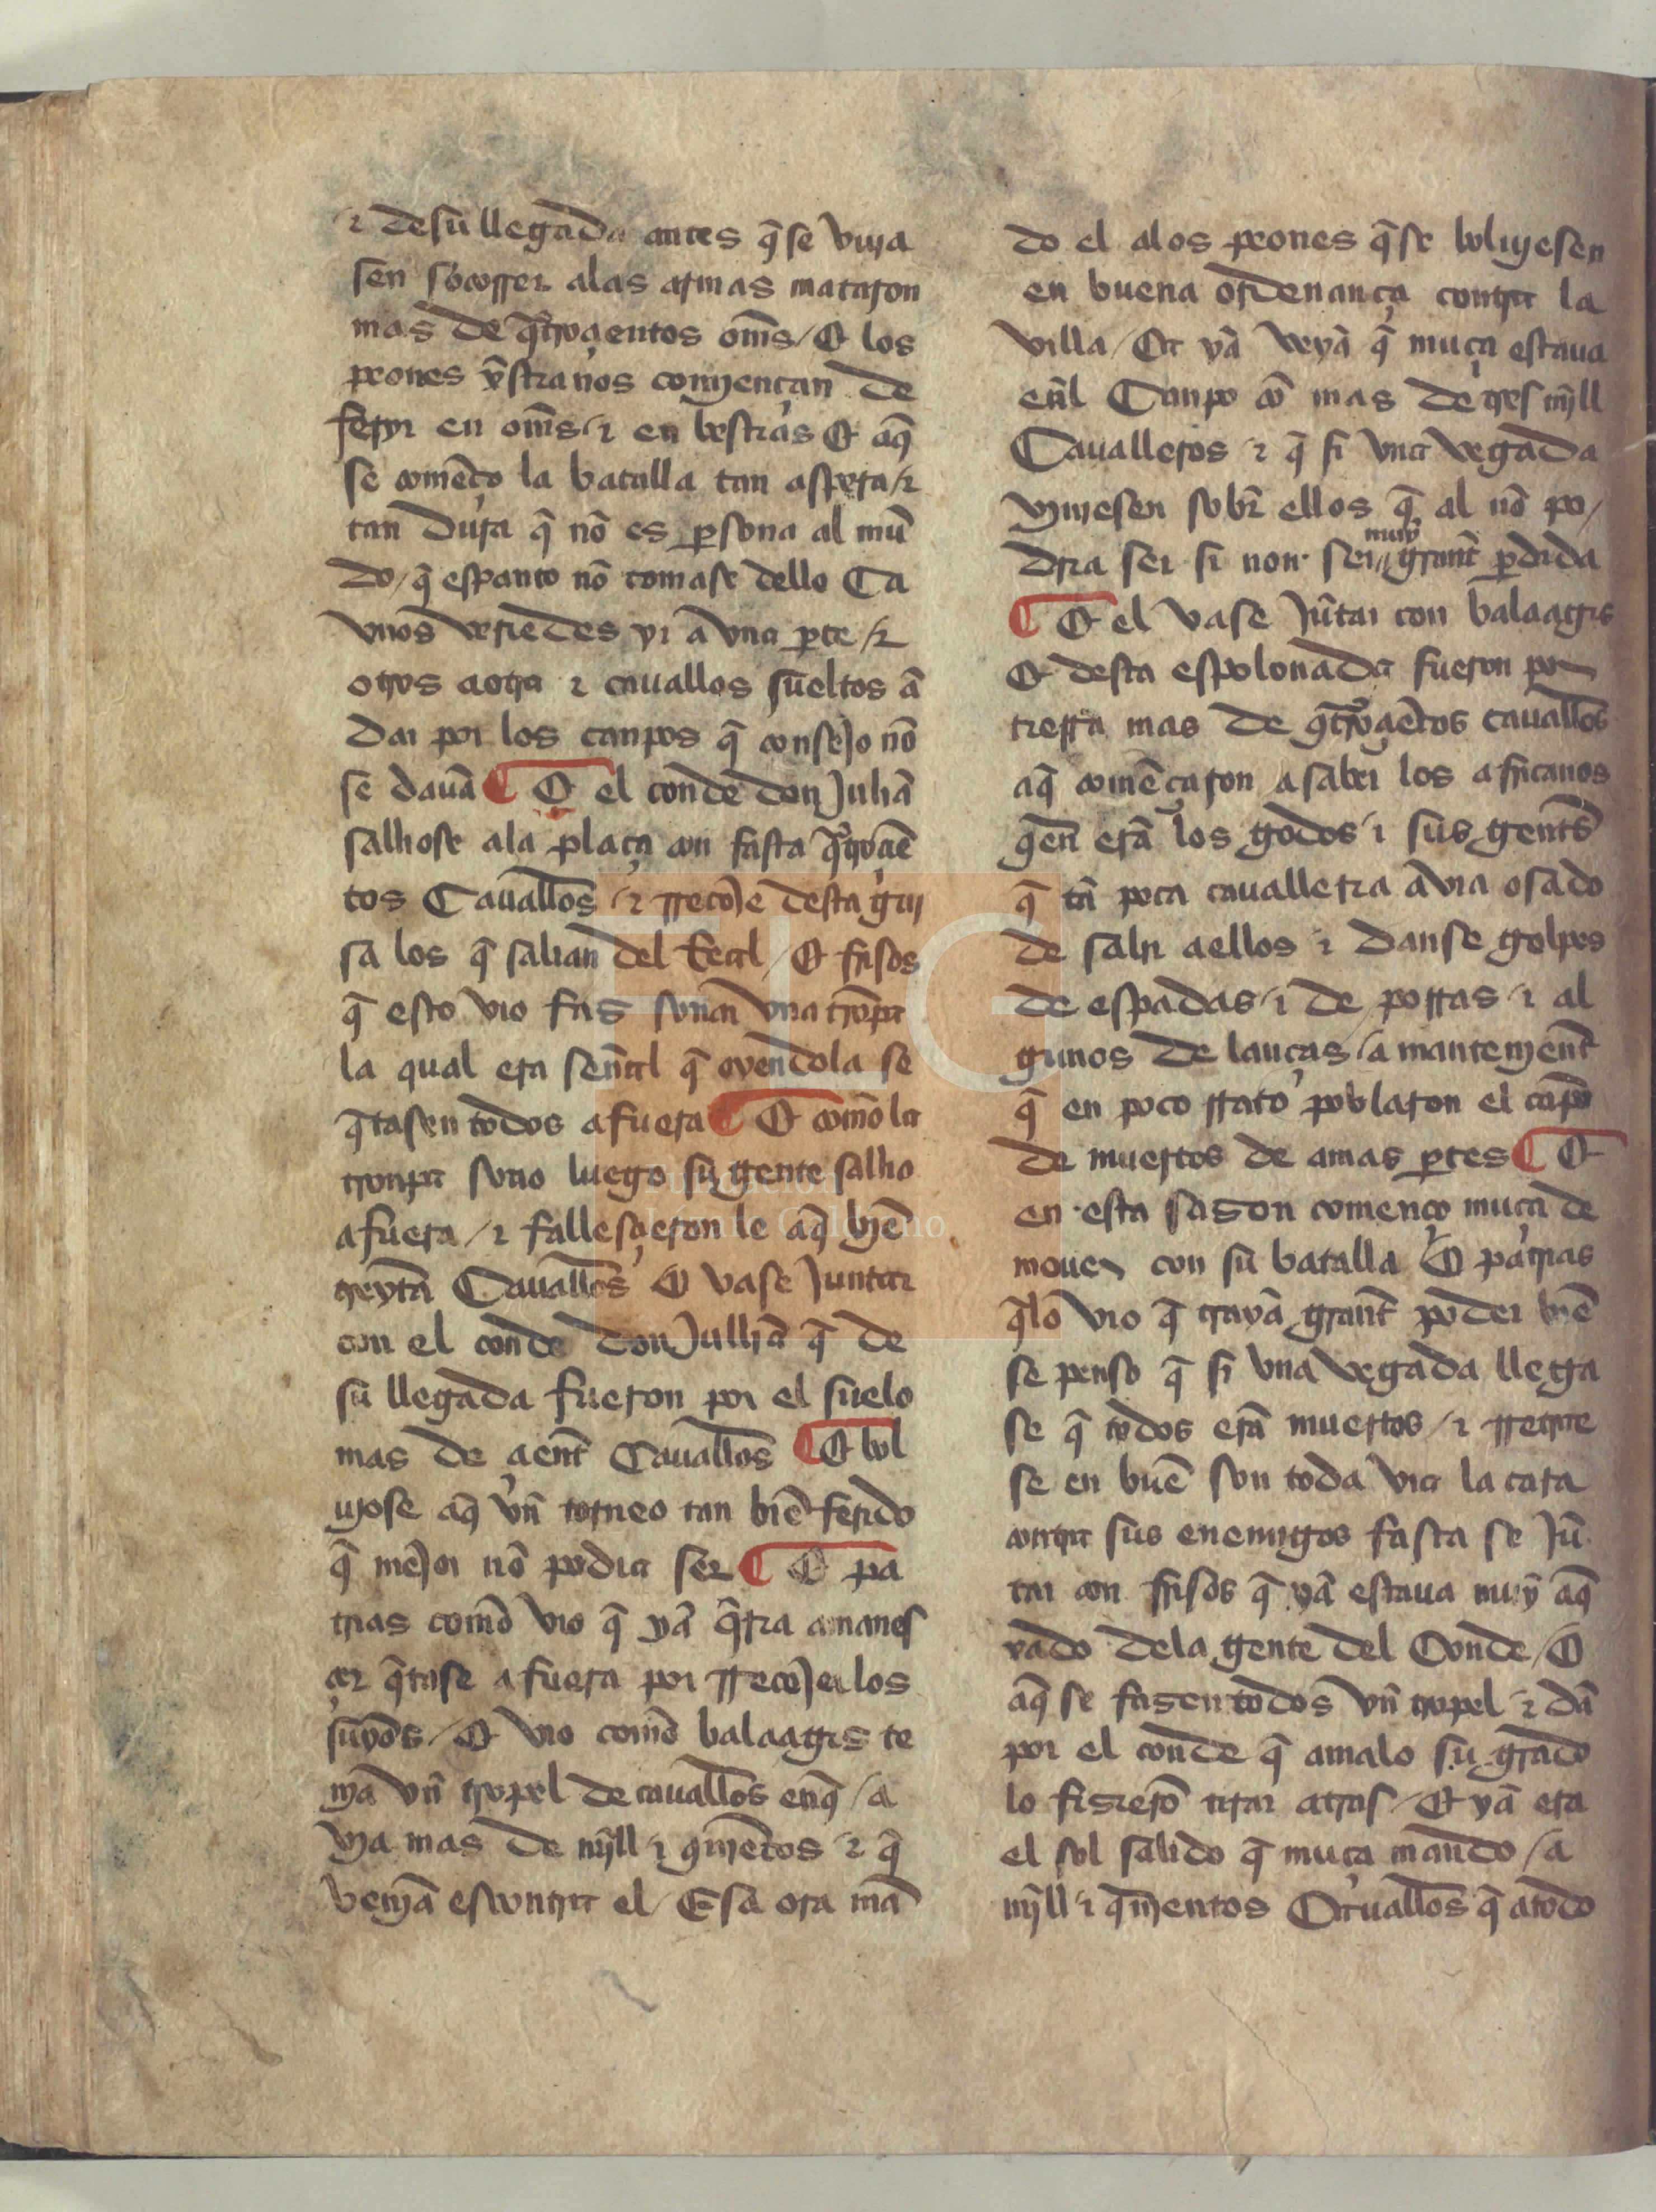 ⁊ desu llegada antes q̃ se vuja
sen socorrer alas armas mataron
mas de q̃troçientos om̃s / E los
peones x̃stianos comjençan de
feryr en om̃s / ⁊ en bestias E aq̃
se comẽço la batalla tan aspera / ⁊
tan dura q̃ nõ es persona al mũ
do / q̃ espanto nõ tomase dello Ca
vnos veriedes yr a vna p̱te / ⁊
otros aotra ⁊ cauallos sueltos ã
dar por los canpos q̃ consejo nõ
se dauã ¶ E el conde don Juliã
salliose ala plaça con fasta q̃troçiẽ
tos Cauallos̃ / ⁊ rrecoje desta guj
sa los q̃ salian del Real / E frisos
q̃ esto vio fas sonar vna tronpa
la qual era señal q̃ oyendola se
q̃tasen todos afuera ¶ E comõ la
tronpa sono luego su gente sallio
afuera / ⁊ falleçieron le aq̃ bjẽ
treyta Cauallos̃ E vase Juntar
con el conde don Julliã q̃ de
su llegada fueron por el suelo
mas de çient̃ Cauallos̃ ¶ E bol
ujose aq̃ vñ torneo tan biẽ ferido
q̃ mejor nõ podia ser ¶ E pa
trias comõ vio q̃ yã q̃ria amanes
çer q̃tase afuera por rrecojer los
suyos / E vio comõ balaagis te
njã vñ tropel de cauallos̃ enq̃ / a
vja mas de mjll ⁊ qujñetos ⁊ q̃
venjã escontra el / Esa ora mã
do el alos peones q̃ se boluyesen
en buena ordenança contra la
villa / Ca yã veyã q̃ muça estaua
eñl Canpo cõ mas de tres mjll
Caualleros ⁊ q̃ si vna vegada
vinjesen sobr̃ ellos q̃ al nõ po /
dria ser si non ser muy grant̃ p̱dida
¶ E el vase Jũtar con balaagis
E desta espolonada fueron por
tierra mas de q̃troçiẽtos cauallos̃
aq̃ comẽçaron asaber los africanos
q̃en erã los godos ⁊ sus gent̃s
q̃ tã poca caualleria ãuia osado
de salir aellos ⁊ danse golpes
de espadas ⁊ de porras ⁊ al
gunos de lanças / a manteniẽnt̃
q̃ en poco rrato poblaron el cãpo
de muertos de amas p̱tes ¶ E
en esta sason començo muça de
mouer con su batalla E patrias
q̃lo vio q̃ trayã grant̃ poder biẽ
se penso q̃ si vna vegada llega
se q̃ todos erã muertos / ⁊ rretrae
se en buẽ son toda via la cara
contra sus enemigos fasta se Jũ
tar con frisos q̃ yã estaua muỹ aq̃
xado dela gente del Conde / E
aq̃ se fasen todos vñ tropel ⁊ dã
por el conde q̃ amalo su grado
lo fisierõ tirar atras / E yã era
el sol salido q̃ muça mando / a
mjll ⁊ q̃njentos Cauallos̃ q̃ atodo